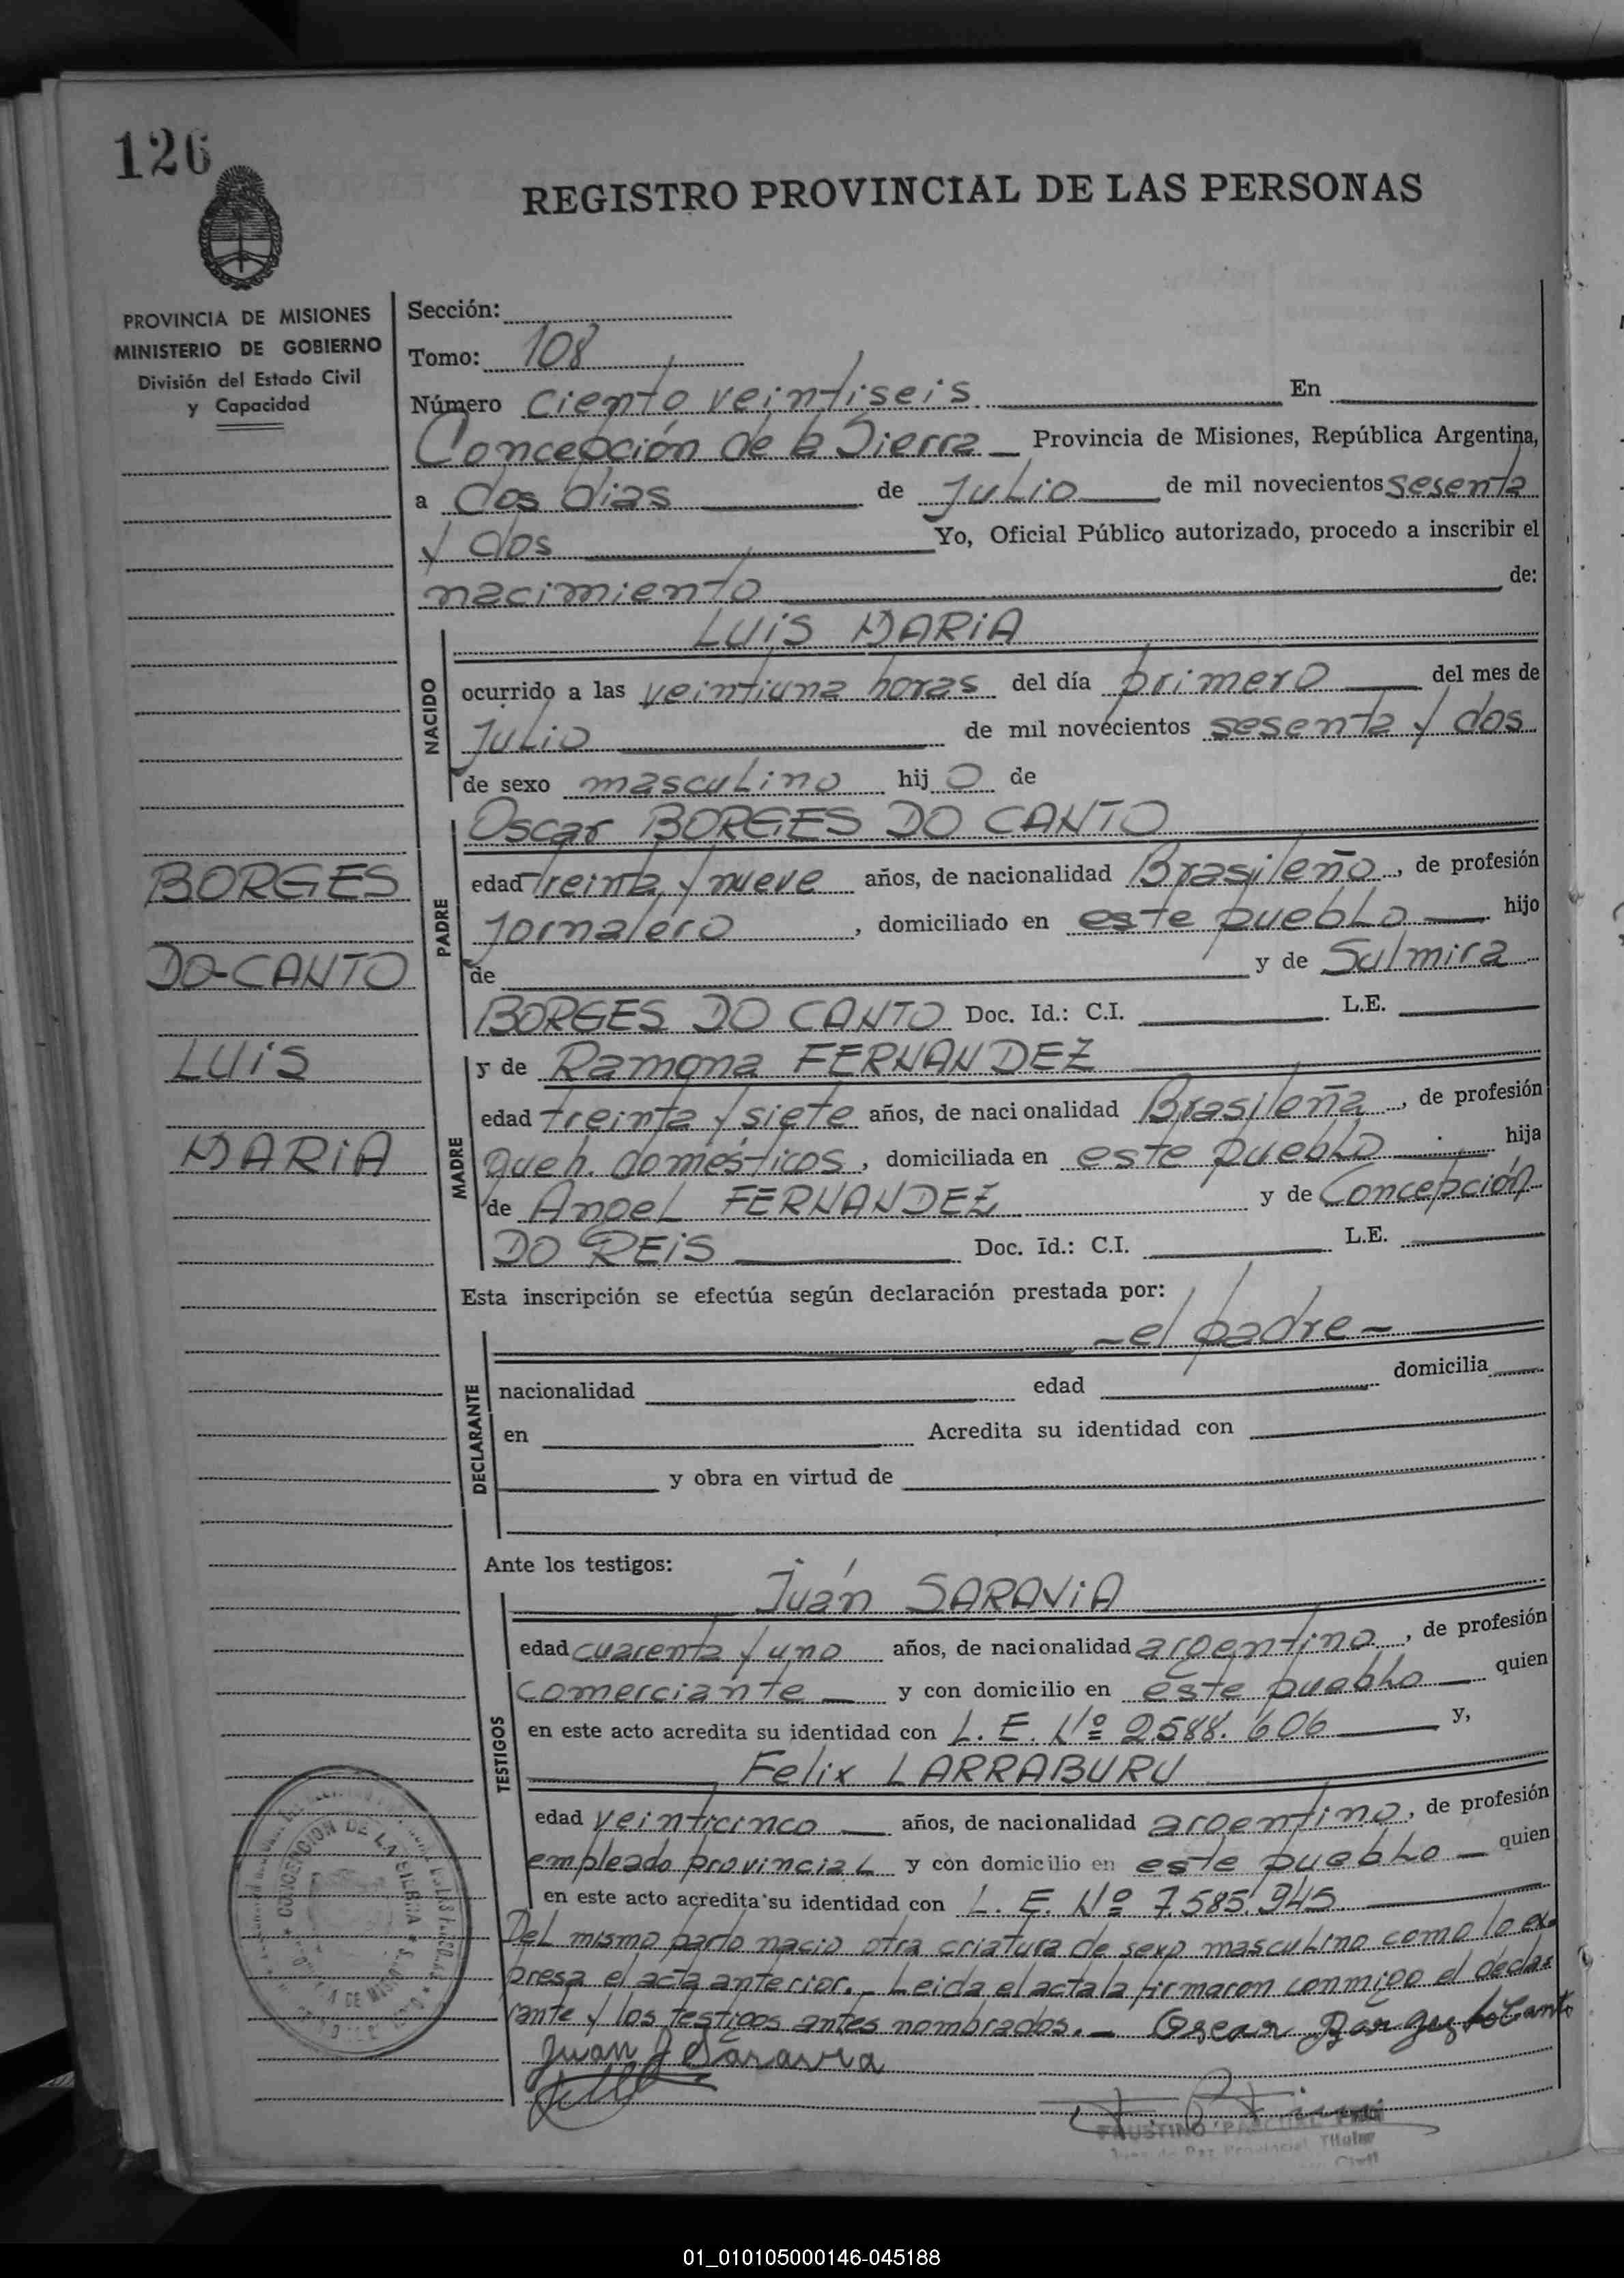 126
REGISTRO PROVINCIAL DE LAS PERSONAS
PROVINCIA DE MISIONES
MINISTERIO DE GOBIERNO
División del Estado Civil
y Capacidad
BORGES
DO-CANTO
LUiS
MARiA
Sección:
Tomo: 108
Número ciento veintiseis En
Concepción de la Sierra Provincia de Misiones, República Argentina,
a dos dias de Julio de mil novecientos sesenta
y dos Yo, Oficial Público autorizado, procedo a inscribir el
nacimiento de:
LUiS MARiA
NACIDO
ocurrido a las veintiuna horas del día primero del mes de
Julio de mil novecientos sesenta y dos
de sexo masculino hijo de
Oscar BORGES DO CANTO
PADRE
edad treinta y nueve años, de nacionalidad Brasileño, de profesión
Jornalero, domiciliado en este pueblo hijo
de y de Sulmira
BORGES DO CANTO Doc. Id.: C.I. L.E.
y de Ramona FERNANDEZ
MADRE
edad treinta y siete años, de nacionalidad Brasileña, de profesión
queh. domésticos, domiciliada en este pueblo hija
de Angel FERNANDEZ y de Concepción
DO REiS Doc. Id.: C.I. L.E.
Esta inscripción se efectúa según declaración prestada por:
- el padre -
DECLARANTE
nacionalidad edad domicilia
en Acredita su identidad con
y obra en virtud de
Ante los testigos:
Juán SARAViA
TESTIGOS
edad cuarenta y uno años, de nacionalidad argentino, de profesión
comerciante y con domicilio en este pueblo quien
en este acto acredita su identidad con L. E. Nº 2.588.606 y,
Felix LARRABURU
edad veinticinco años, de nacionalidad argentino, de profesión
empleado provincial y con domicilio en este pueblo quien
en este acto acredita su identidad con L. E. Nº 7.585.945
Del mismo parto nacio otra criatura de sexo masculino como lo ex-
presa el acta anterior.- Leida el acta la firmaron conmigo el decla-
rante y los testigos antes nombrados.- Oscar Borges do Canto
Juan J Saravia
CONCEPCION DE LA SIERRA
FAUSTINO PASCUAL
Juez de Paz Provincial Titular
01_010105000146-045188